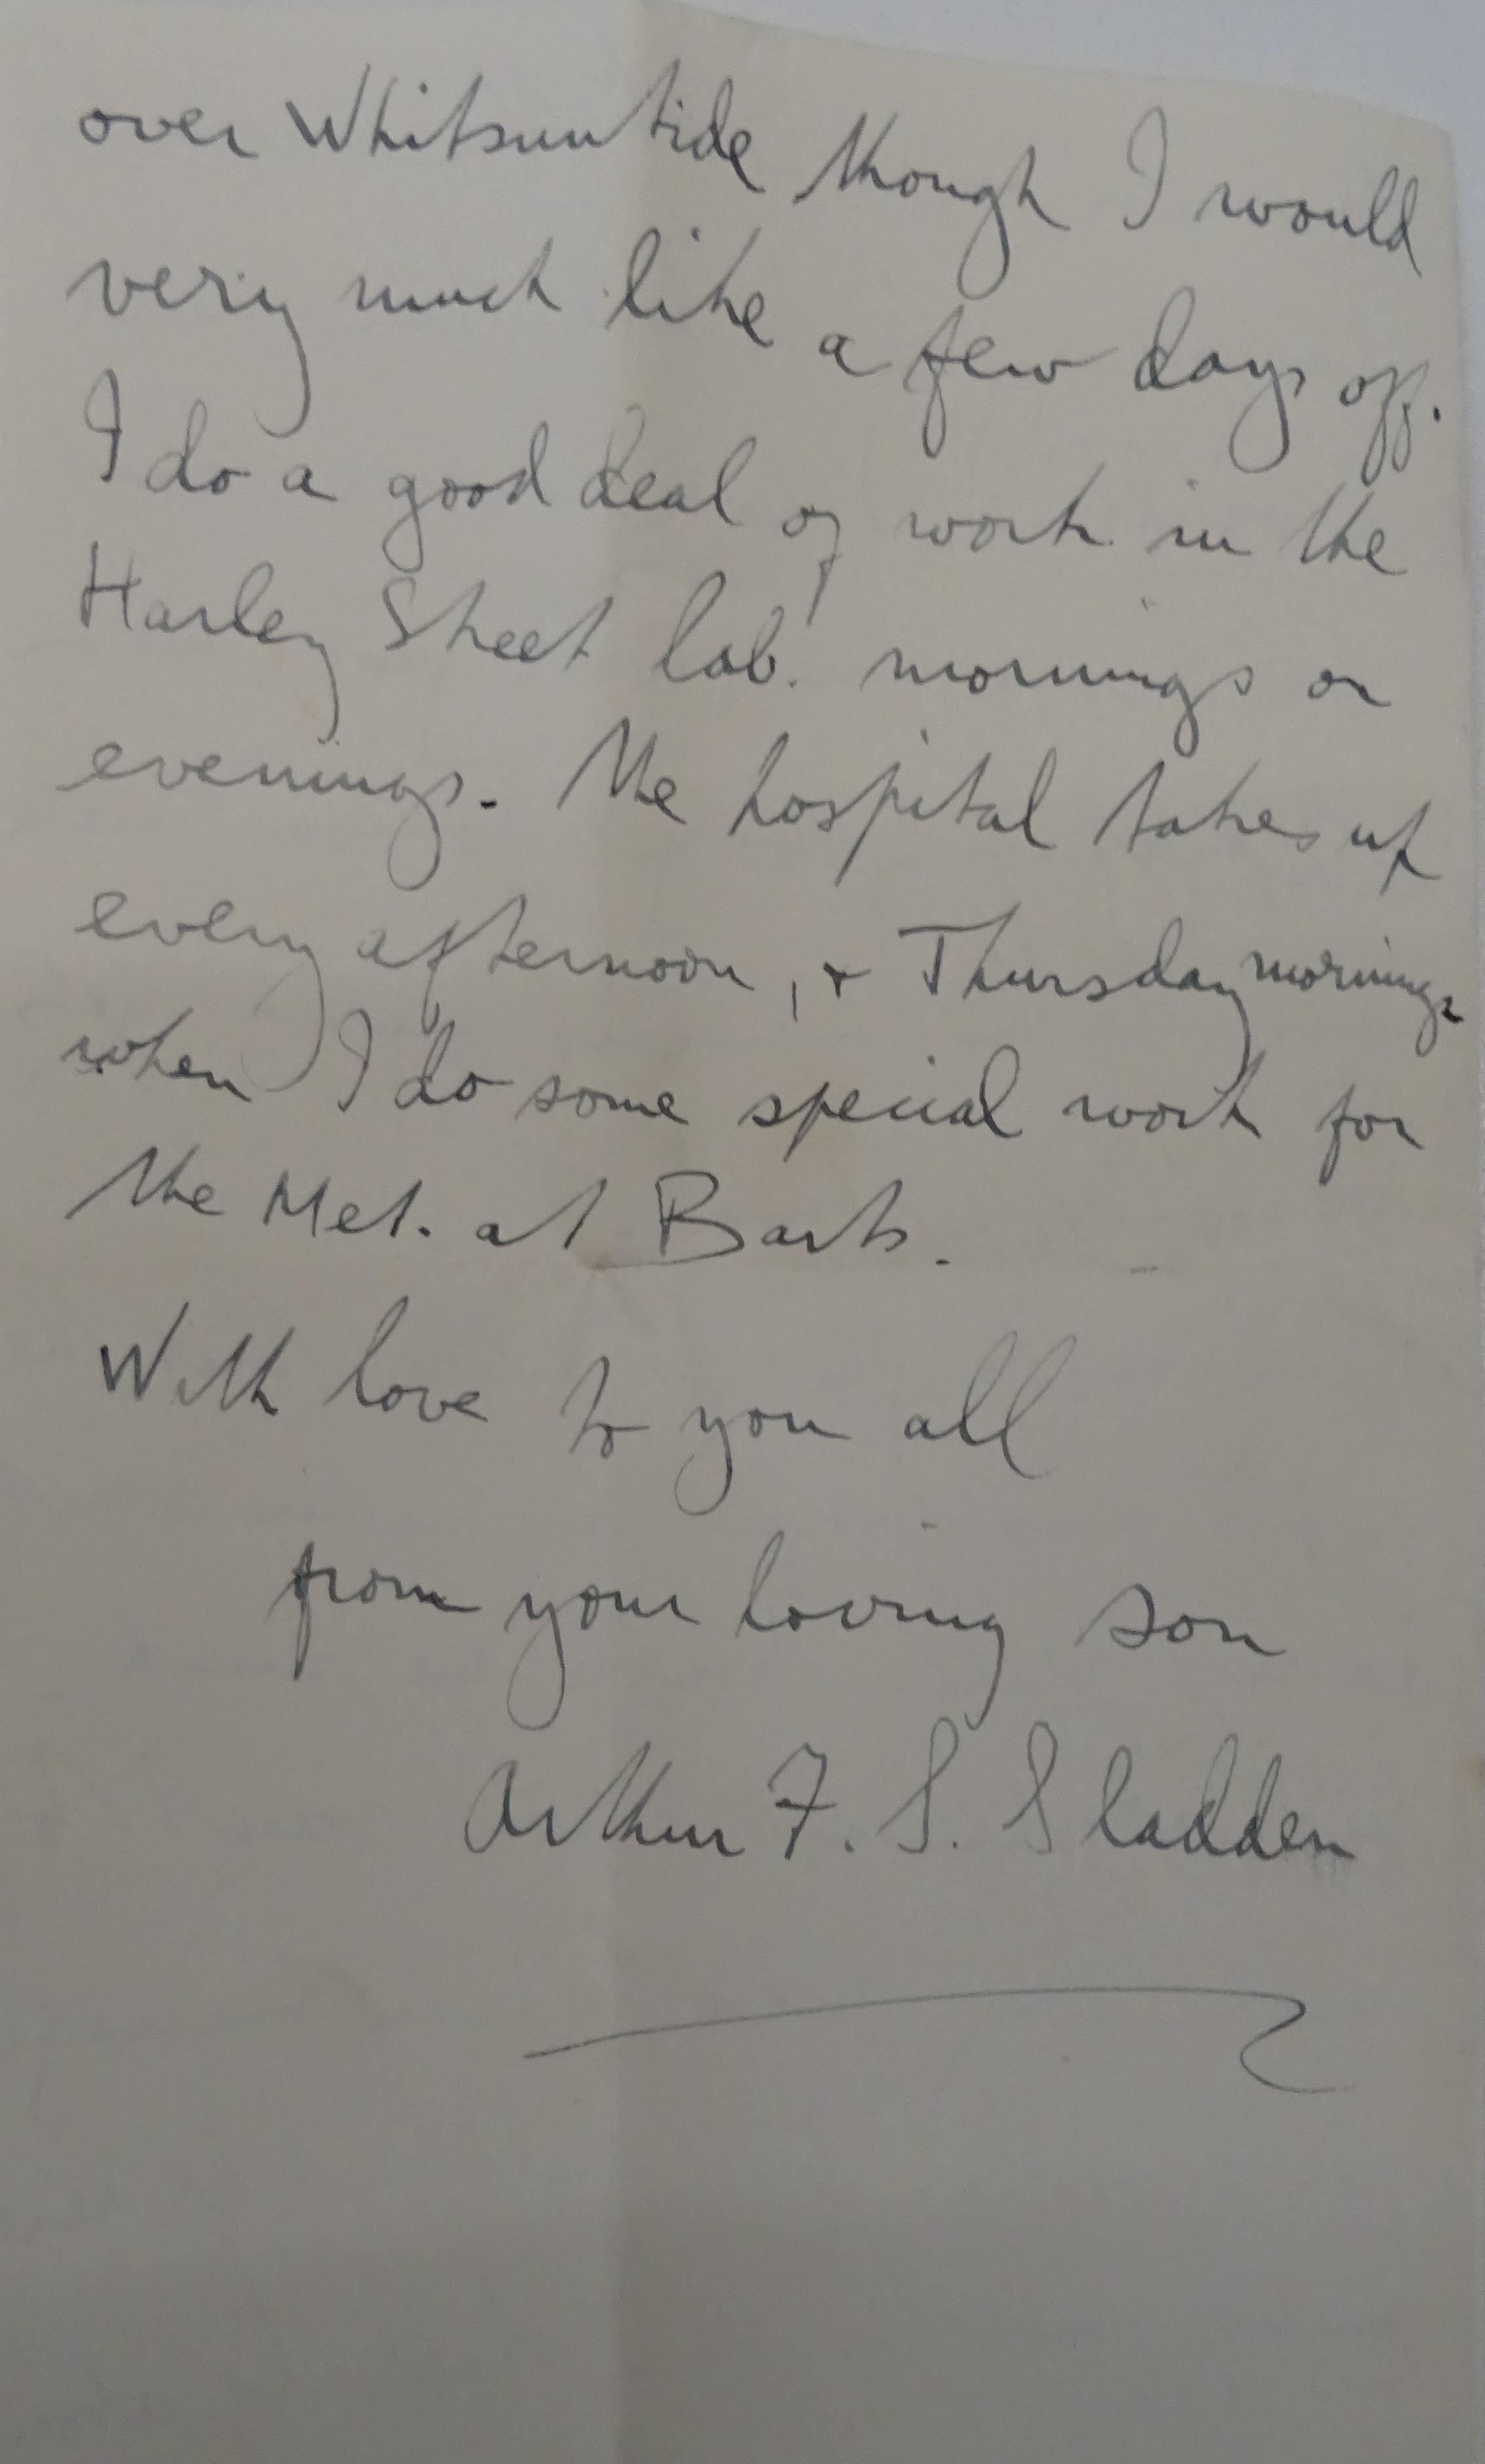 over Whitsuntide though I would
very much like a few days off.
I do a good deal of work in the
Harley Street lab. mornings or
evenings. The hospital takes up
every afternoon, & Thursday mornings
when I do some special work for
the Met. at Barts.
With love to you all
from your loving son
Arthur F. S. Sladden